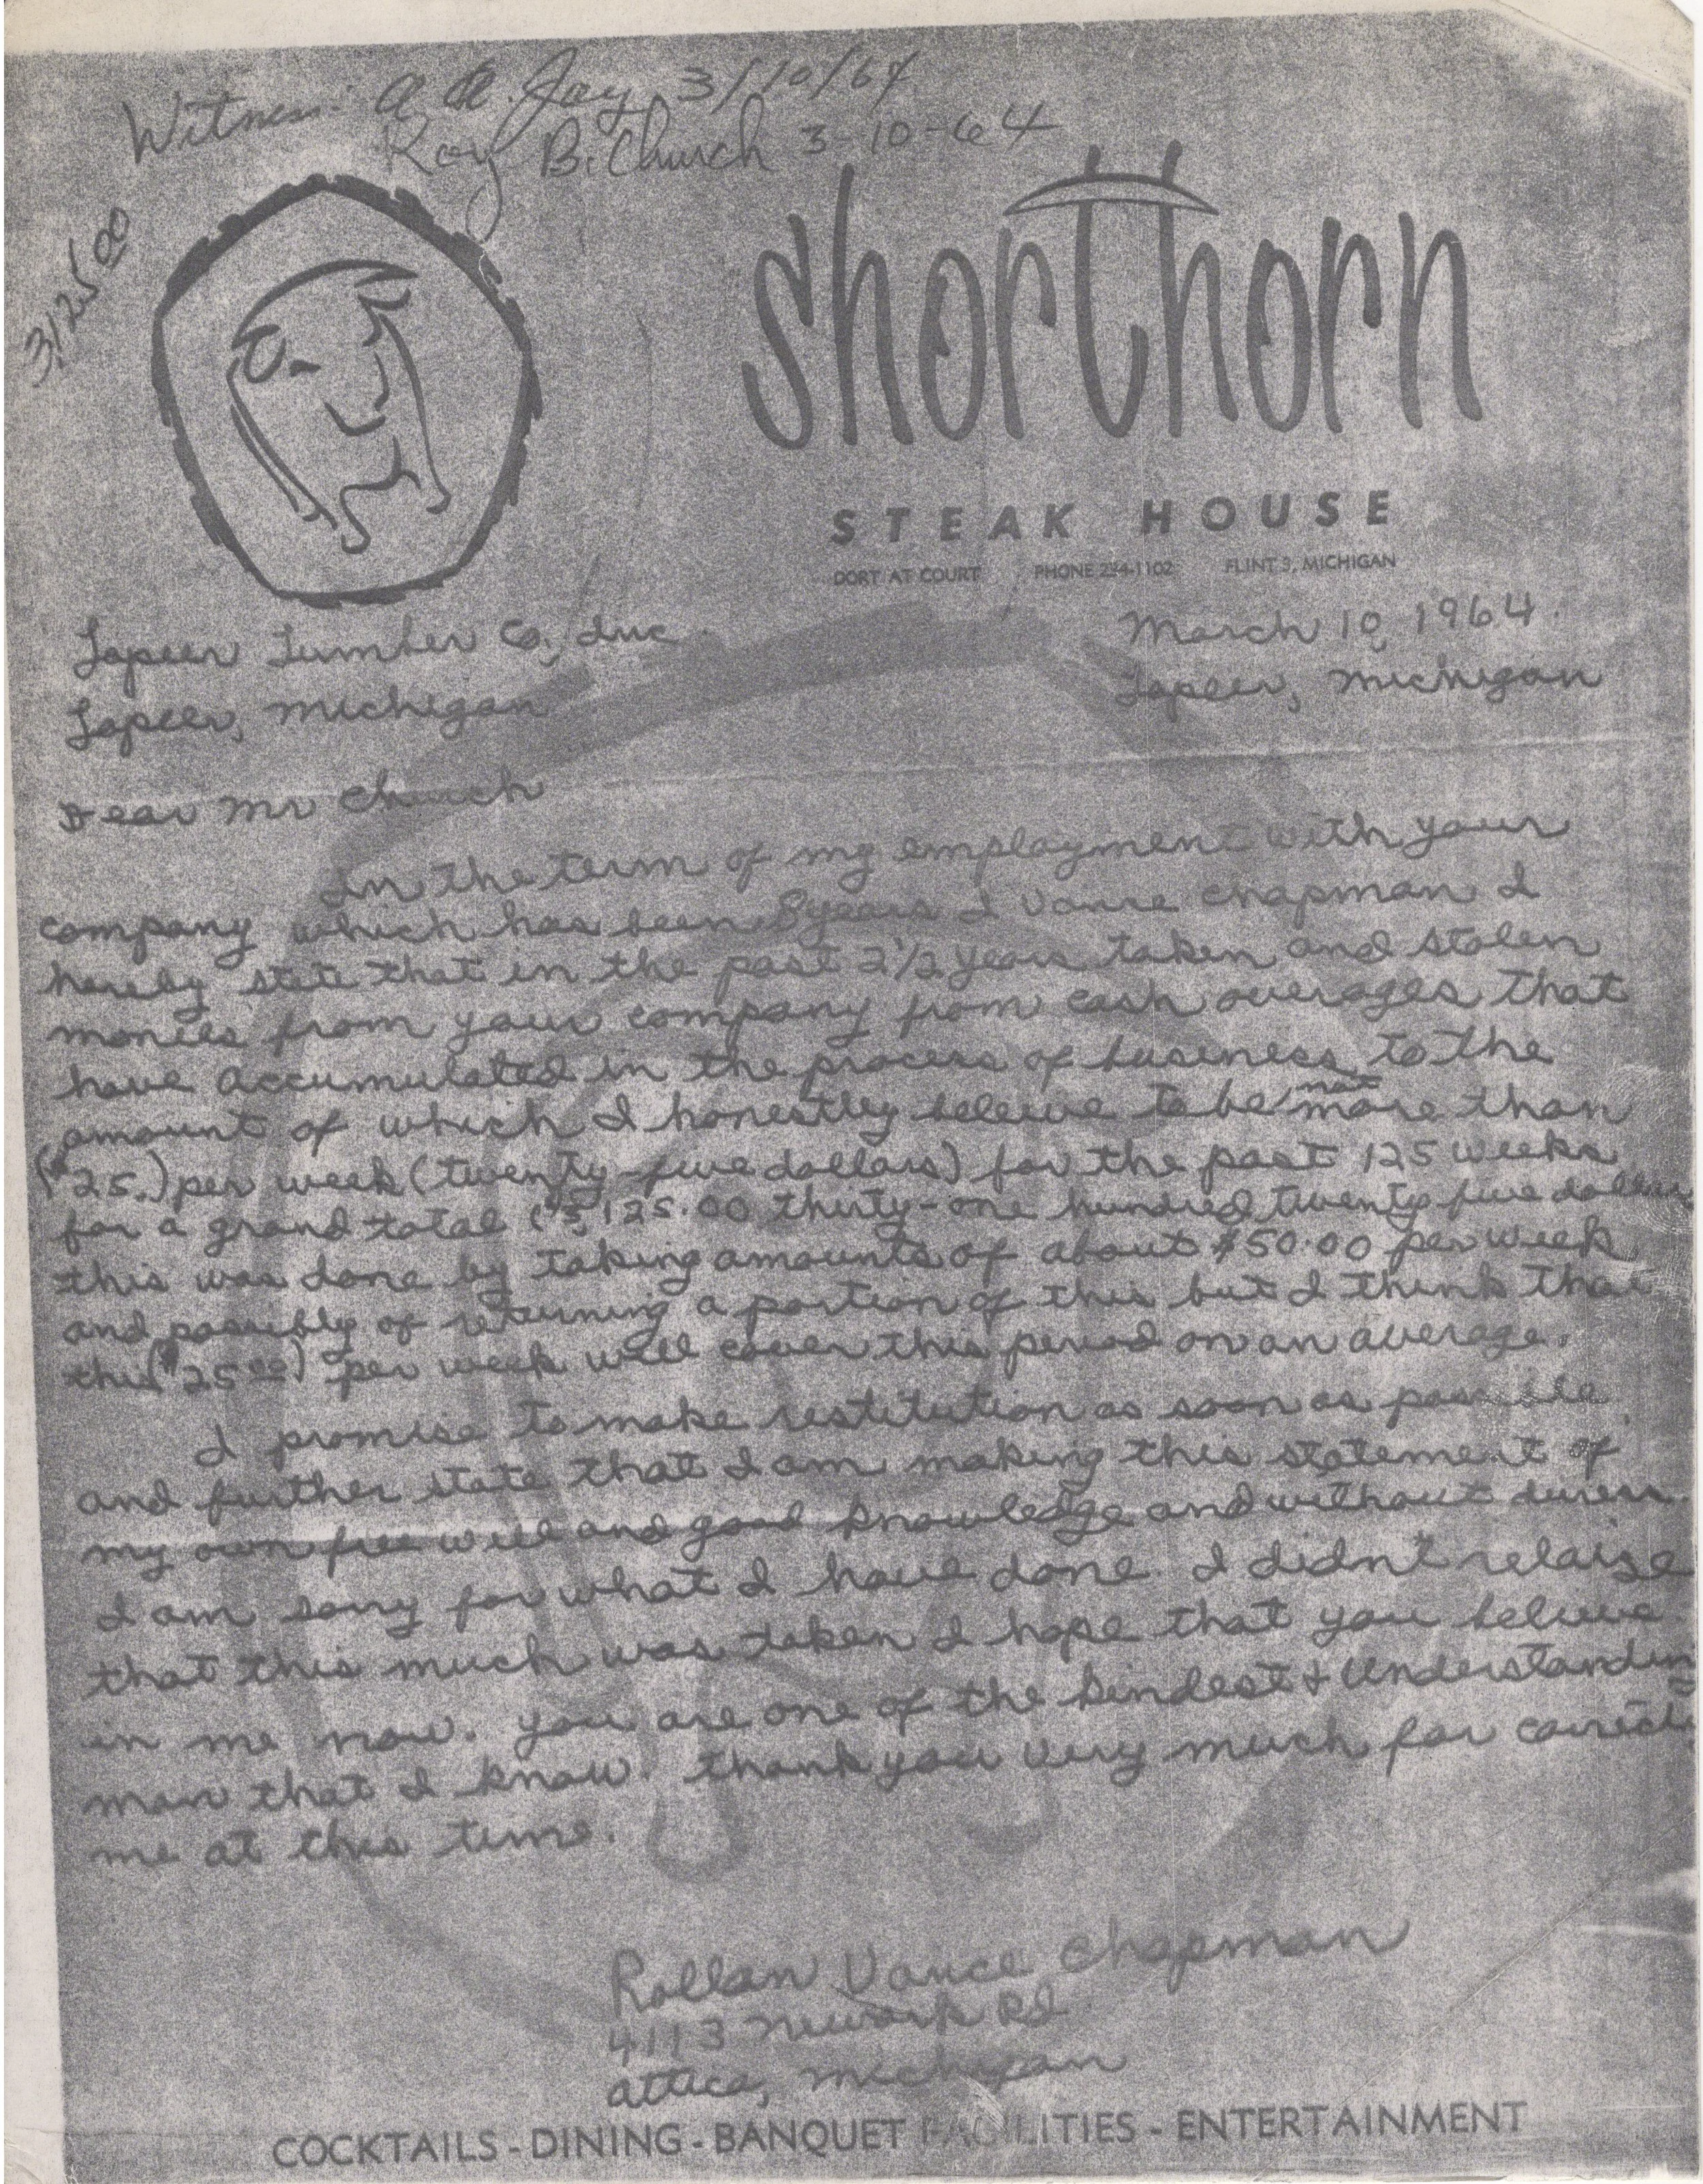 Witness: A A. Jay 3/10/64
Roy B. Church 3-10-64
3125 00
shorthorn
STEAK HOUSE
DORT AT COURT PHONE 234-1102 FLINT 3, MICHIGAN
Lapeer Lumber Co, Inc.
March 10, 1964.
Lapeer, Michigan
Lapeer, Michigan
Dear Mr Church
In the term of my employment with your
company which has been 8 years I Vance Chapman I
hereby state that in the past 2 1/2 years taken and stolen
monies from your company from cash overages that
have accumulated in the process of business to the
amount of which I honestley beleive to be not more than
($25.) per week (twenty-five dollars) for the past 125 weeks
for a grand total ($3,125.00 thirty-one hundred twenty five dollars
this was done by taking amounts of about $50.00 per week
and possibly of returning a portion of this but I think that
this ($25 00) per week will cover this period on an average.
I promise to make restitution as soon as possible
and further state that I am making this statement of
my own free will and good knowledge and without duress
I am sorry for what I have done. I didn't relaize
that this much was taken I hope that you believe
in me now. you are one of the kindest & understanding
man that I know. thank you very much for correcti
me at this time.
Rollan Vance Chapman
4113 Newark Rd
Attica, Michigan
COCKTAILS - DINING - BANQUET FACILITIES - ENTERTAINMENT